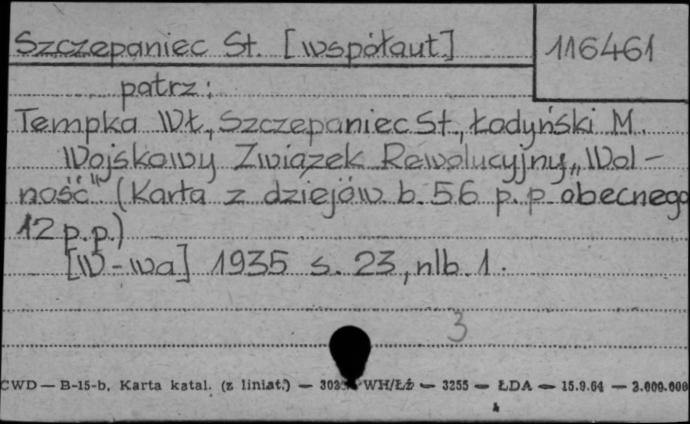 Szczepaniec St. [współaut.] 116461
patrz:
Tempka Wł., Szczepaniec St., Łodyński M.
Wojskowy Związek Rewolucyjny „Wol-
ność" (Karta z dziejów b. 56 p. p. obecnego
12 p.p.)
[W-wa] 1935 s. 23, nlb. 1.
3
CWD — B-15-b, Karta katal. (z liniat.) — WH/Łż — 3255 — ŁDA — 15.9.64 — 2.000.000